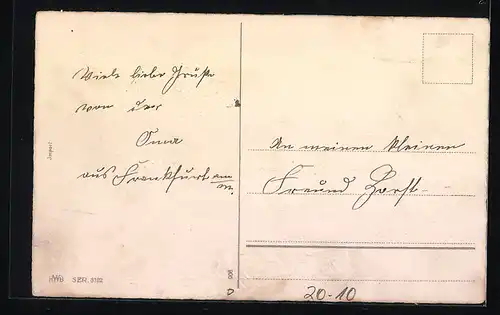 Viele liebe Grüße
von der
Oma
aus Frankfurt am/M.
An meinen kleinen
Freund Horst
Import
HWB SER. 3102
20-10